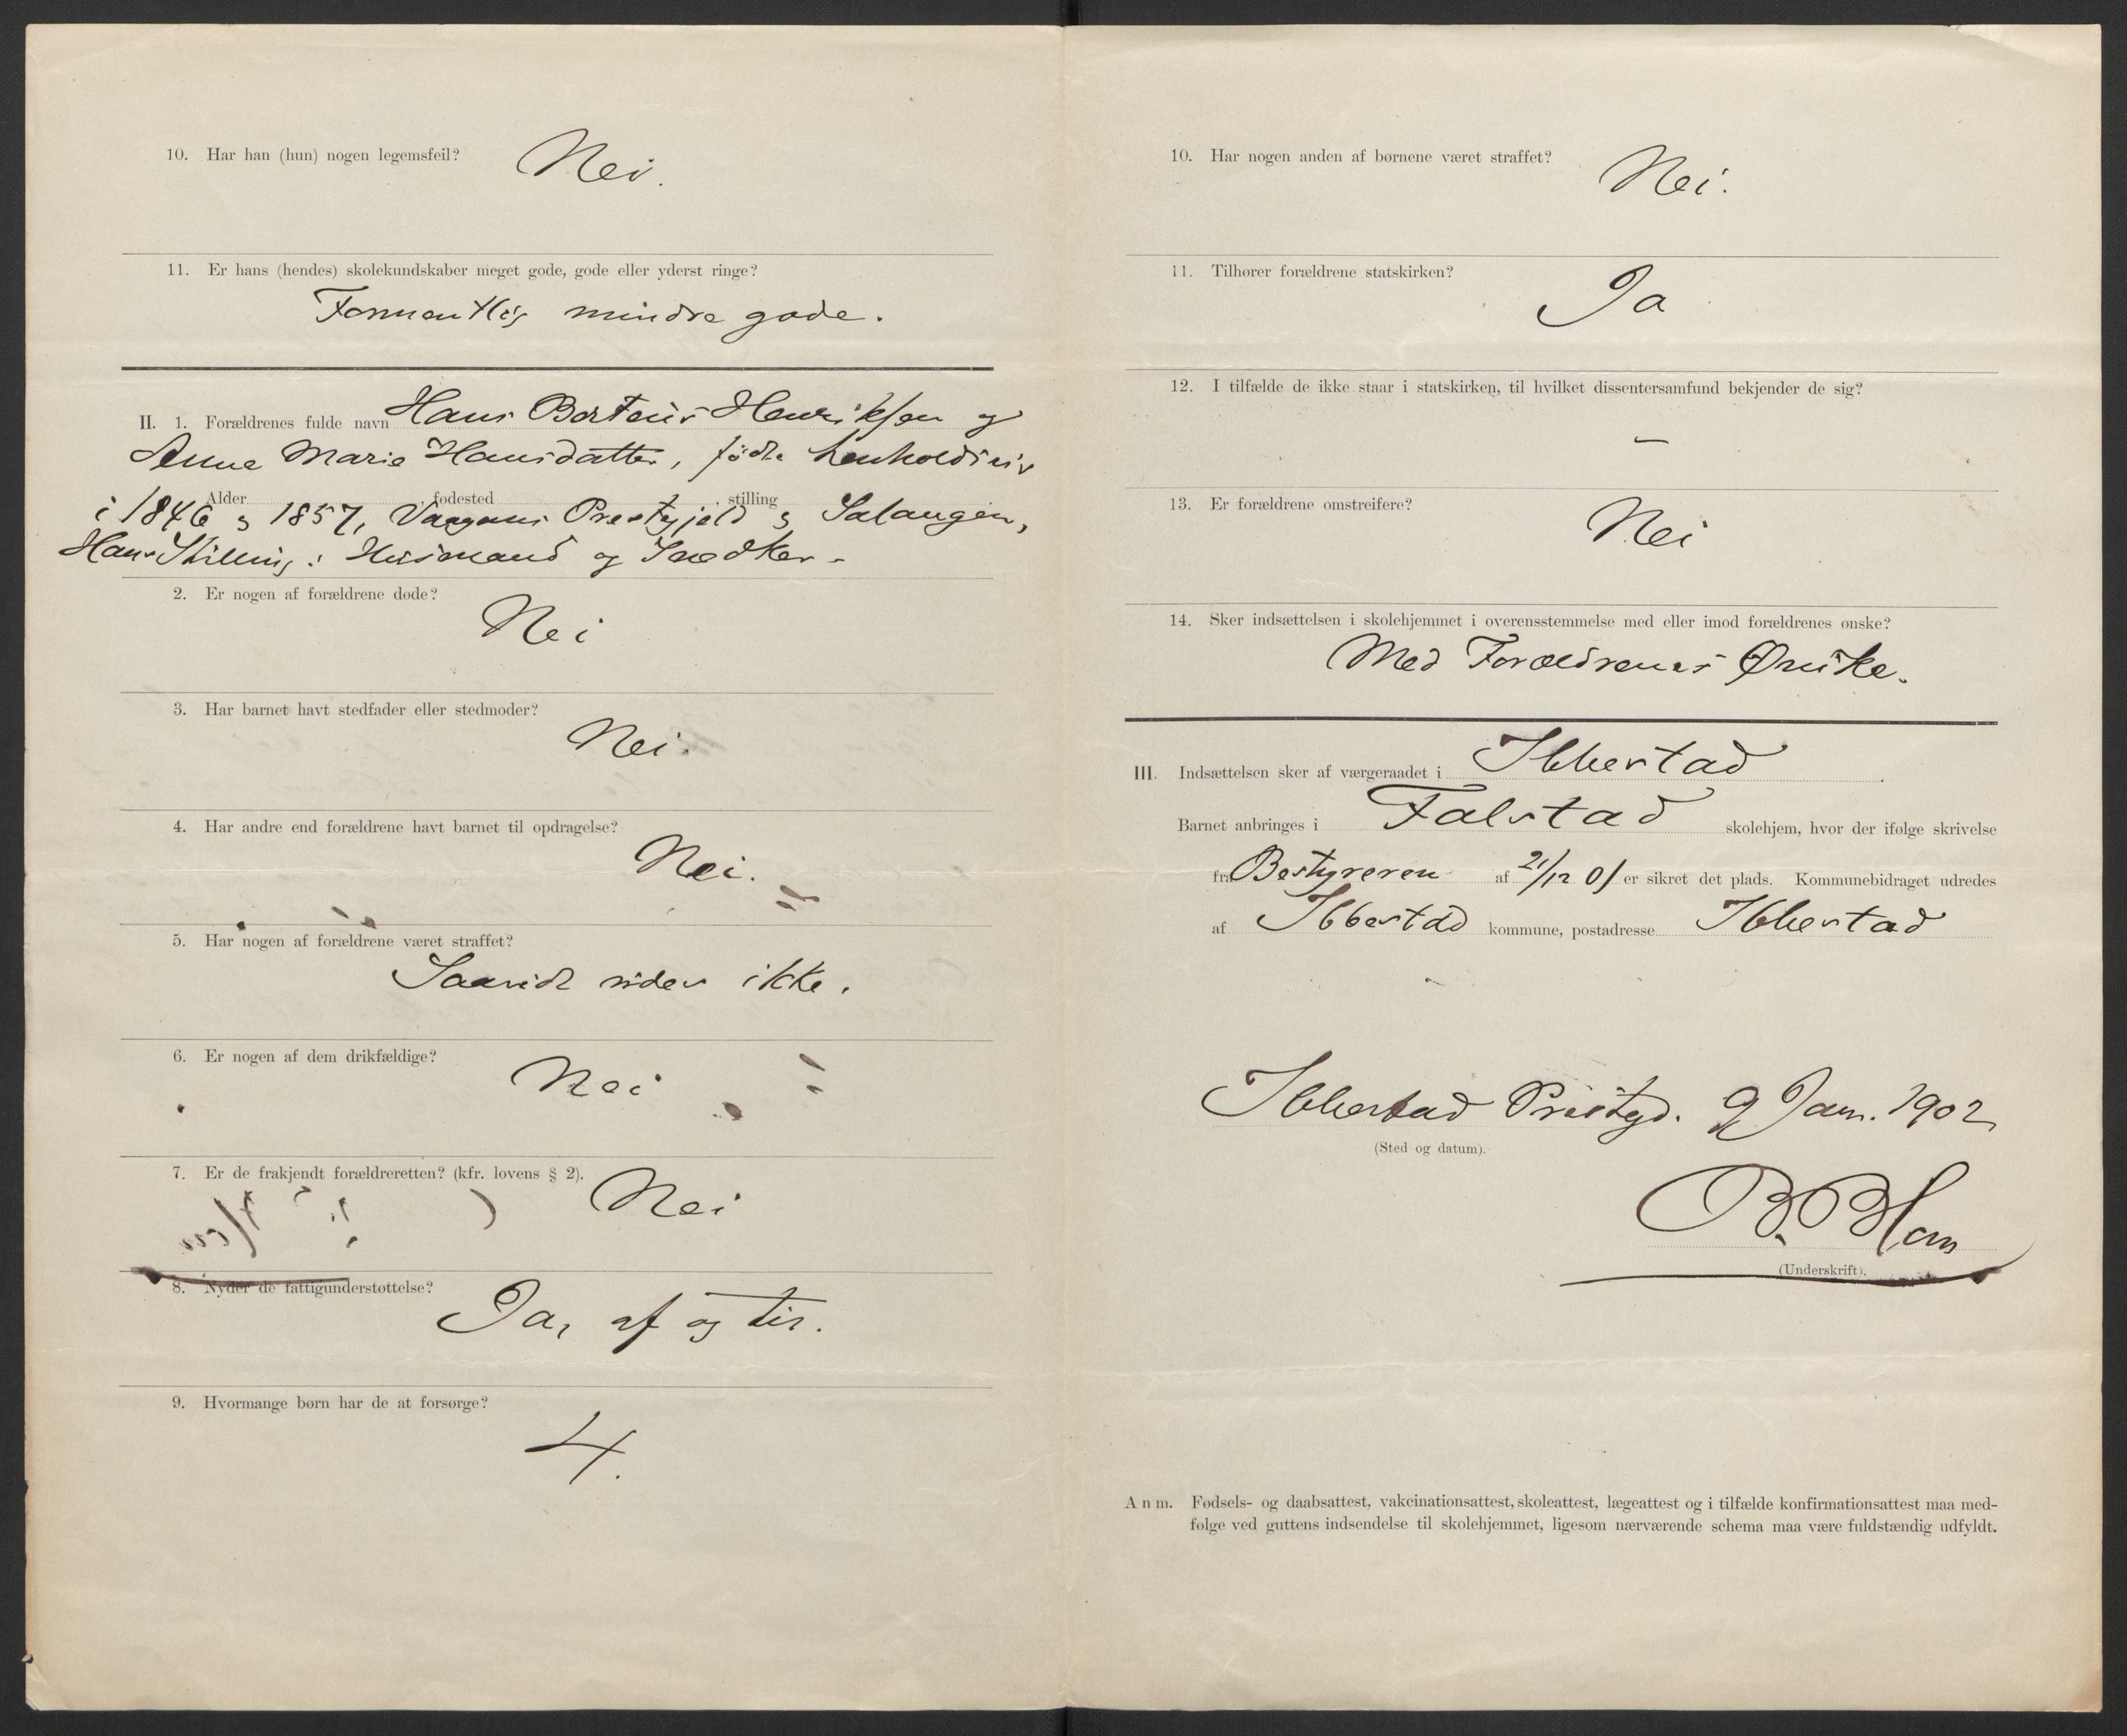 10. Har han (hun) nogen legemsfeil? Nei.
11. Er hans (hendes) skolekundskaber meget gode, gode eller yderst ringe?
Formentlig mindre gode.
II. 1. Forældrenes fulde navn Hans Berteus Henriksen og
Anne Marie Hansdatter, fødte henholdsvis
Alder , fødested , stilling
i 1846 og 1857, Vaagans Prestgjeld og Salangen,
Hans Stilling: Husmand og Snedker.
2. Er nogen af forældrene døde? Nei
3. Har barnet havt stedfader eller stedmoder? Nei.
4. Har andre end forældrene havt barnet til opdragelse? Nei.
5. Har nogen af forældrene været straffet?
Saavidt vides ikke.
6. Er nogen af dem drikfældige? Nei
7. Er de frakjendt forældreretten? (kfr. lovens § 2). Nei
8. Nyder de fattigunderstøttelse? Ja, af og til.
9. Hvormange børn har de at forsørge?
4.
10. Har nogen anden af børnene været straffet? Nei.
11. Tilhører forældrene statskirken?
Ja
12. I tilfælde de ikke staar i statskirken, til hvilket dissentersamfund bekjender de sig?
—
13. Er forældrene omstreifere? Nei
14. Sker indsættelsen i skolehjemmet i overensstemmelse med eller imod forældrenes ønske?
Med Forældrenes Ønske.
III. Indsættelsen sker af værgeraadet i Ibbestad.
Barnet anbringes i Falstad skolehjem, hvor der ifølge skrivelse
fra Bestyreren af 21/12 01 er sikret det plads. Kommunebidraget udredes
af Ibbestad kommune, postadresse Ibbestad
Ibbestad Prestgd. 9 Jan. 1902
(Sted og datum).
B. Blom
(Underskrift).
Anm. Fødsels- og daabsattest, vakcinationsattest, skoleattest, lægeattest og i tilfælde konfirmationsattest maa med-
følge ved guttens indsendelse til skolehjemmet, ligesom nærværende schema maa være fuldstændig udfyldt.